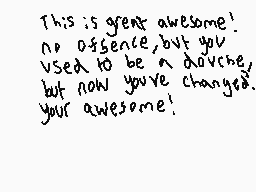 This is great awesome!
no offence, but you
used to be a douche,
but now youve changed.
your awesome!